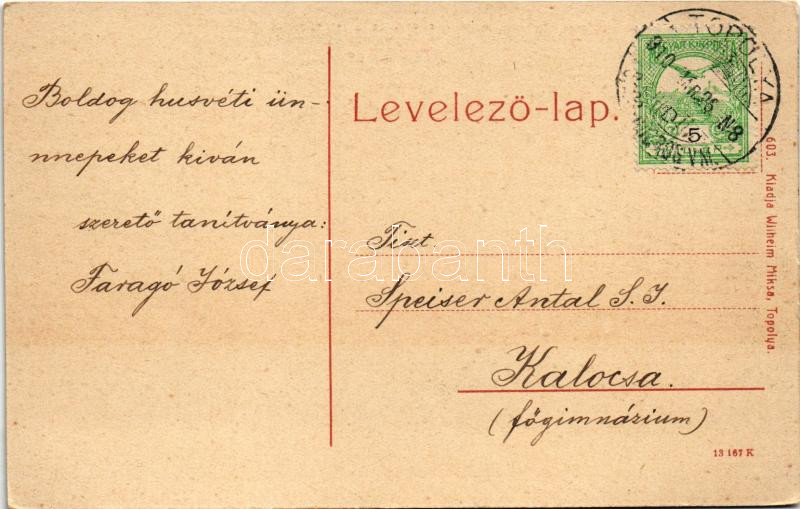 Boldog husvéti ün-
nnepeket kiván
szerető tanítványa:
Faragó József
Levelező-lap.
TOPOLYA
910
N8
MAGYAR KIR. POSTA
5
Tiszt.
Speiser Antal S. J.
Kalocsa.
(főgimnázium)
603. Kiadja Wilheim Miksa, Topolya.
13 167 K
darabanth